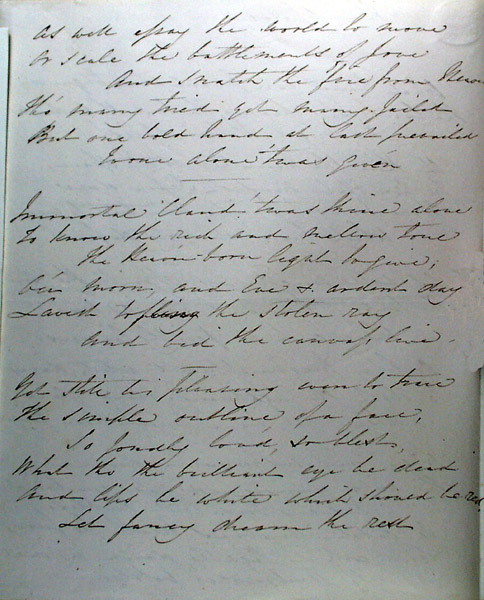 As well essay the world to move
Or scale the battlements of Jove
And snatch the fire from Heav
Tho' many tried yet many fail'd
But one bold hand at last prevailed
To one alone 'twas given
Immortal Claud 'twas thine alone
To know the rich and mellow tone
The Heaven-born light to give,
O'er morn, and Eve & ardent day
Lavish to fling the stolen ray
And bid the canvass live.
Yet still tis pleasing even to trace
The simple outline of a face,
So fondly lov'd, so blest,
What tho the brilliant eye be dead
And lips be white which should be red,
Let fancy dream the rest